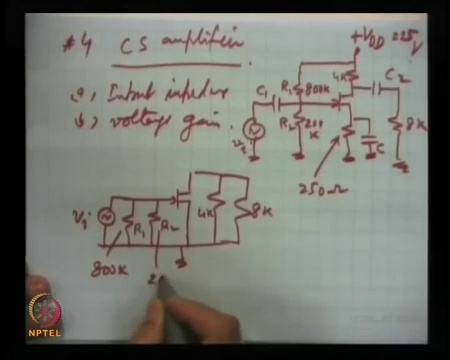 #4 CS amplifier
a, Input impedance
b, voltage gain.
+VDD = 25V
4K
C2
C1
R1 800K
R2 200
K
8K
C
Vi
250Ω
Vi
R1
R2
4K
8K
800K
2
NPTEL